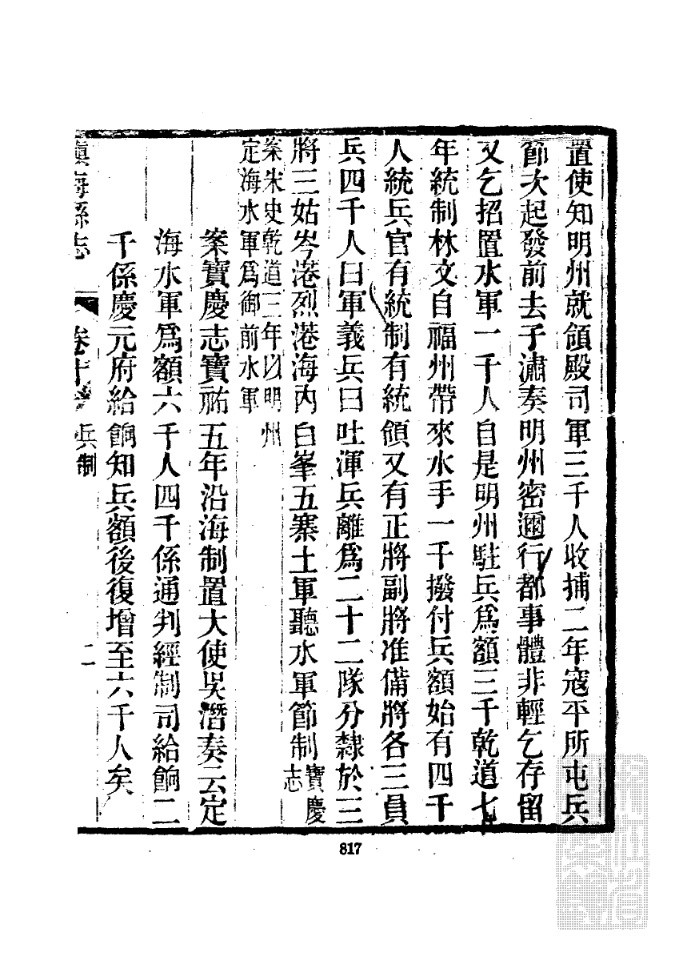 置使知明州就領殿司軍三千人收捕二年寇平所屯兵
節次起發前去子潚奏明州密邇行都事體非輕乞存留
又乞招置水軍一千人自是明州駐兵爲額三千乾道七
年統制林文自福州帶來水手一千撥付兵額始有四千
人統兵官有統制有統領又有正將副將准備將各三員
兵四千人曰軍義兵曰吐渾兵離爲二十二隊分隸於三
將三姑岑港烈港海內白峯五寨土軍聽水軍節制寶慶
志
案宋史乾道三年以明州
定海水軍爲御前水軍
案寶慶志寶祐五年沿海制置大使吳潛奏云定
海水軍爲額六千人四千係通判經制司給餉二
千係慶元府給餉知兵額後復增至六千人矣
鎭海縣志
卷十
兵制
二
817